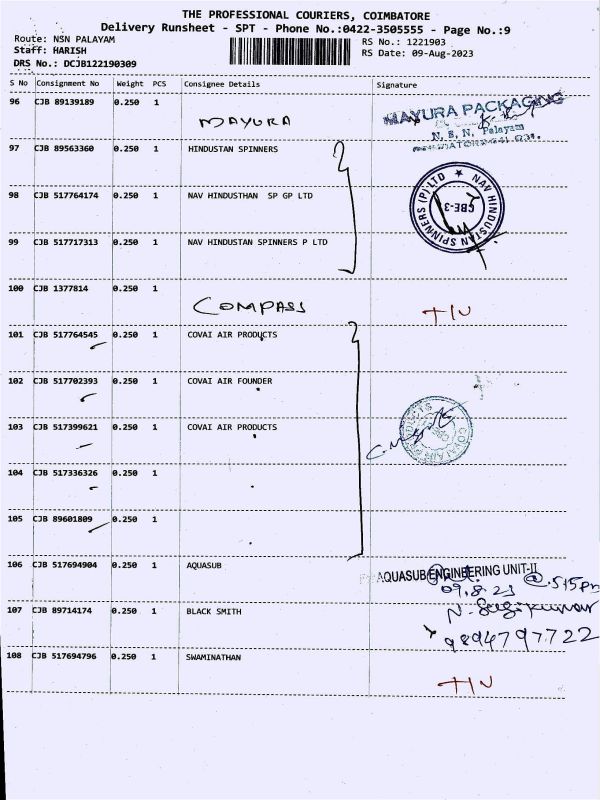 THE PROFESSIONAL COURIERS, COIMBATORE
Delivery Runsheet - SPT - Phone No.:0422-3505555 - Page No.:9
Route: NSN PALAYAM
RS No.: 1221903
Staff: HARISH
RS Date: 09-Aug-2023
DRS No.: DCJB122190309
S No Consignment No Weight PCS Consignee Details Signature
96 CJB 89139189 0.250 1
MAYURA
MAYURA PACKAGING
N. S. N. Palayam
97 CJB 89563360 0.250 1 HINDUSTAN SPINNERS
98 CJB 517764174 0.250 1 NAV HINDUSTHAN SP GP LTD
NAV HINDUSTAN SPINNERS (P) LTD
CBE-3
99 CJB 517717313 0.250 1 NAV HINDUSTAN SPINNERS P LTD
100 CJB 1377814 0.250 1
COMPASS
101 CJB 517764545 0.250 1 COVAI AIR PRODUCTS
102 CJB 517702393 0.250 1 COVAI AIR FOUNDER
103 CJB 517399621 0.250 1 COVAI AIR PRODUCTS
COVAI AIR PRODUCTS
104 CJB 517336326 0.250 1
105 CJB 89601809 0.250 1
106 CJB 517694904 0.250 1 AQUASUB
AQUASUB ENGINEERING UNIT-II
09.8.23 @ 5.15pm
107 CJB 89714174 0.250 1 BLACK SMITH
9894797722
108 CJB 517694796 0.250 1 SWAMINATHAN